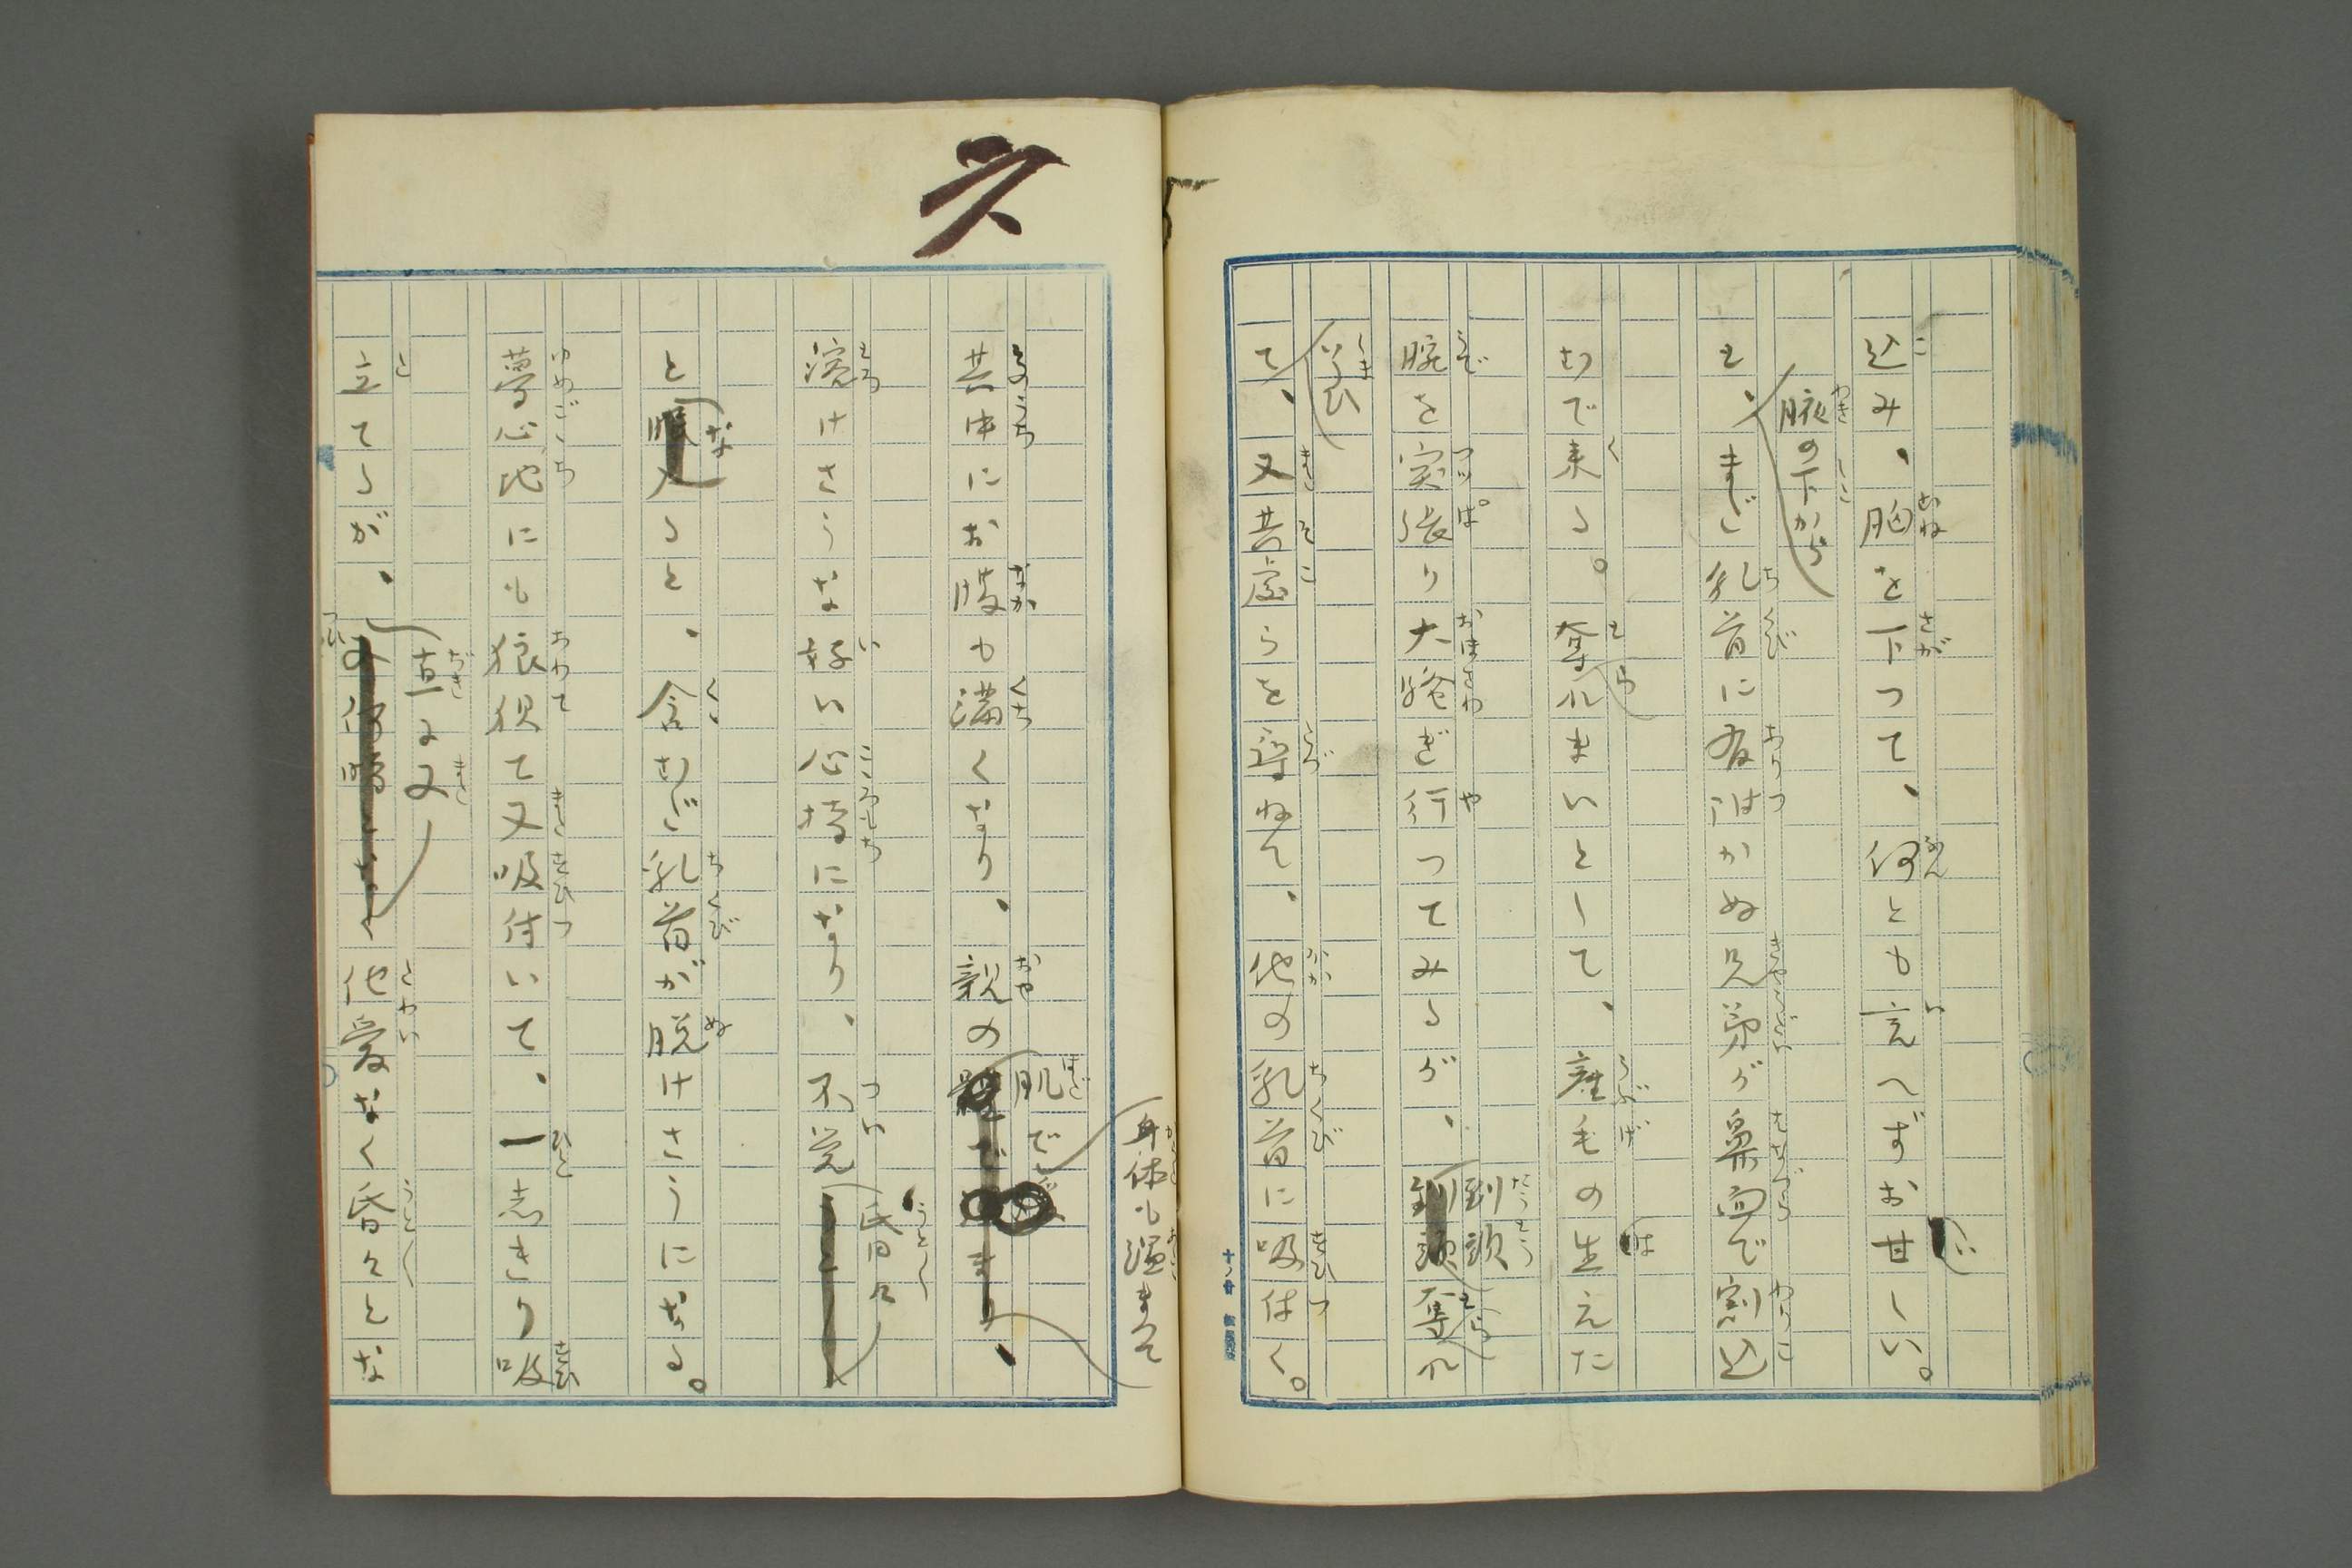 込み、胸を下つて、何とも言へずお甘しい。
腋の下から
も、まだ乳首に有附かぬ兄弟が鼻面で割込
むで来る。奪られまいとして、産毛の生えた
腕を突張り大騒ぎ行つてみるが、到頭奪られ
て、又其処らを尋ねて、他の乳首に吸付く。
其中にお腹も満くなり、親の肌で
身体も温まつて
溶けさうな好い心持になり、不覚昏々
となると、含むだ乳首が脱けさうになる。
夢心地にも狼狽て又吸付いて、一しきり吸
立てるが、直に又他愛なく昏々とな